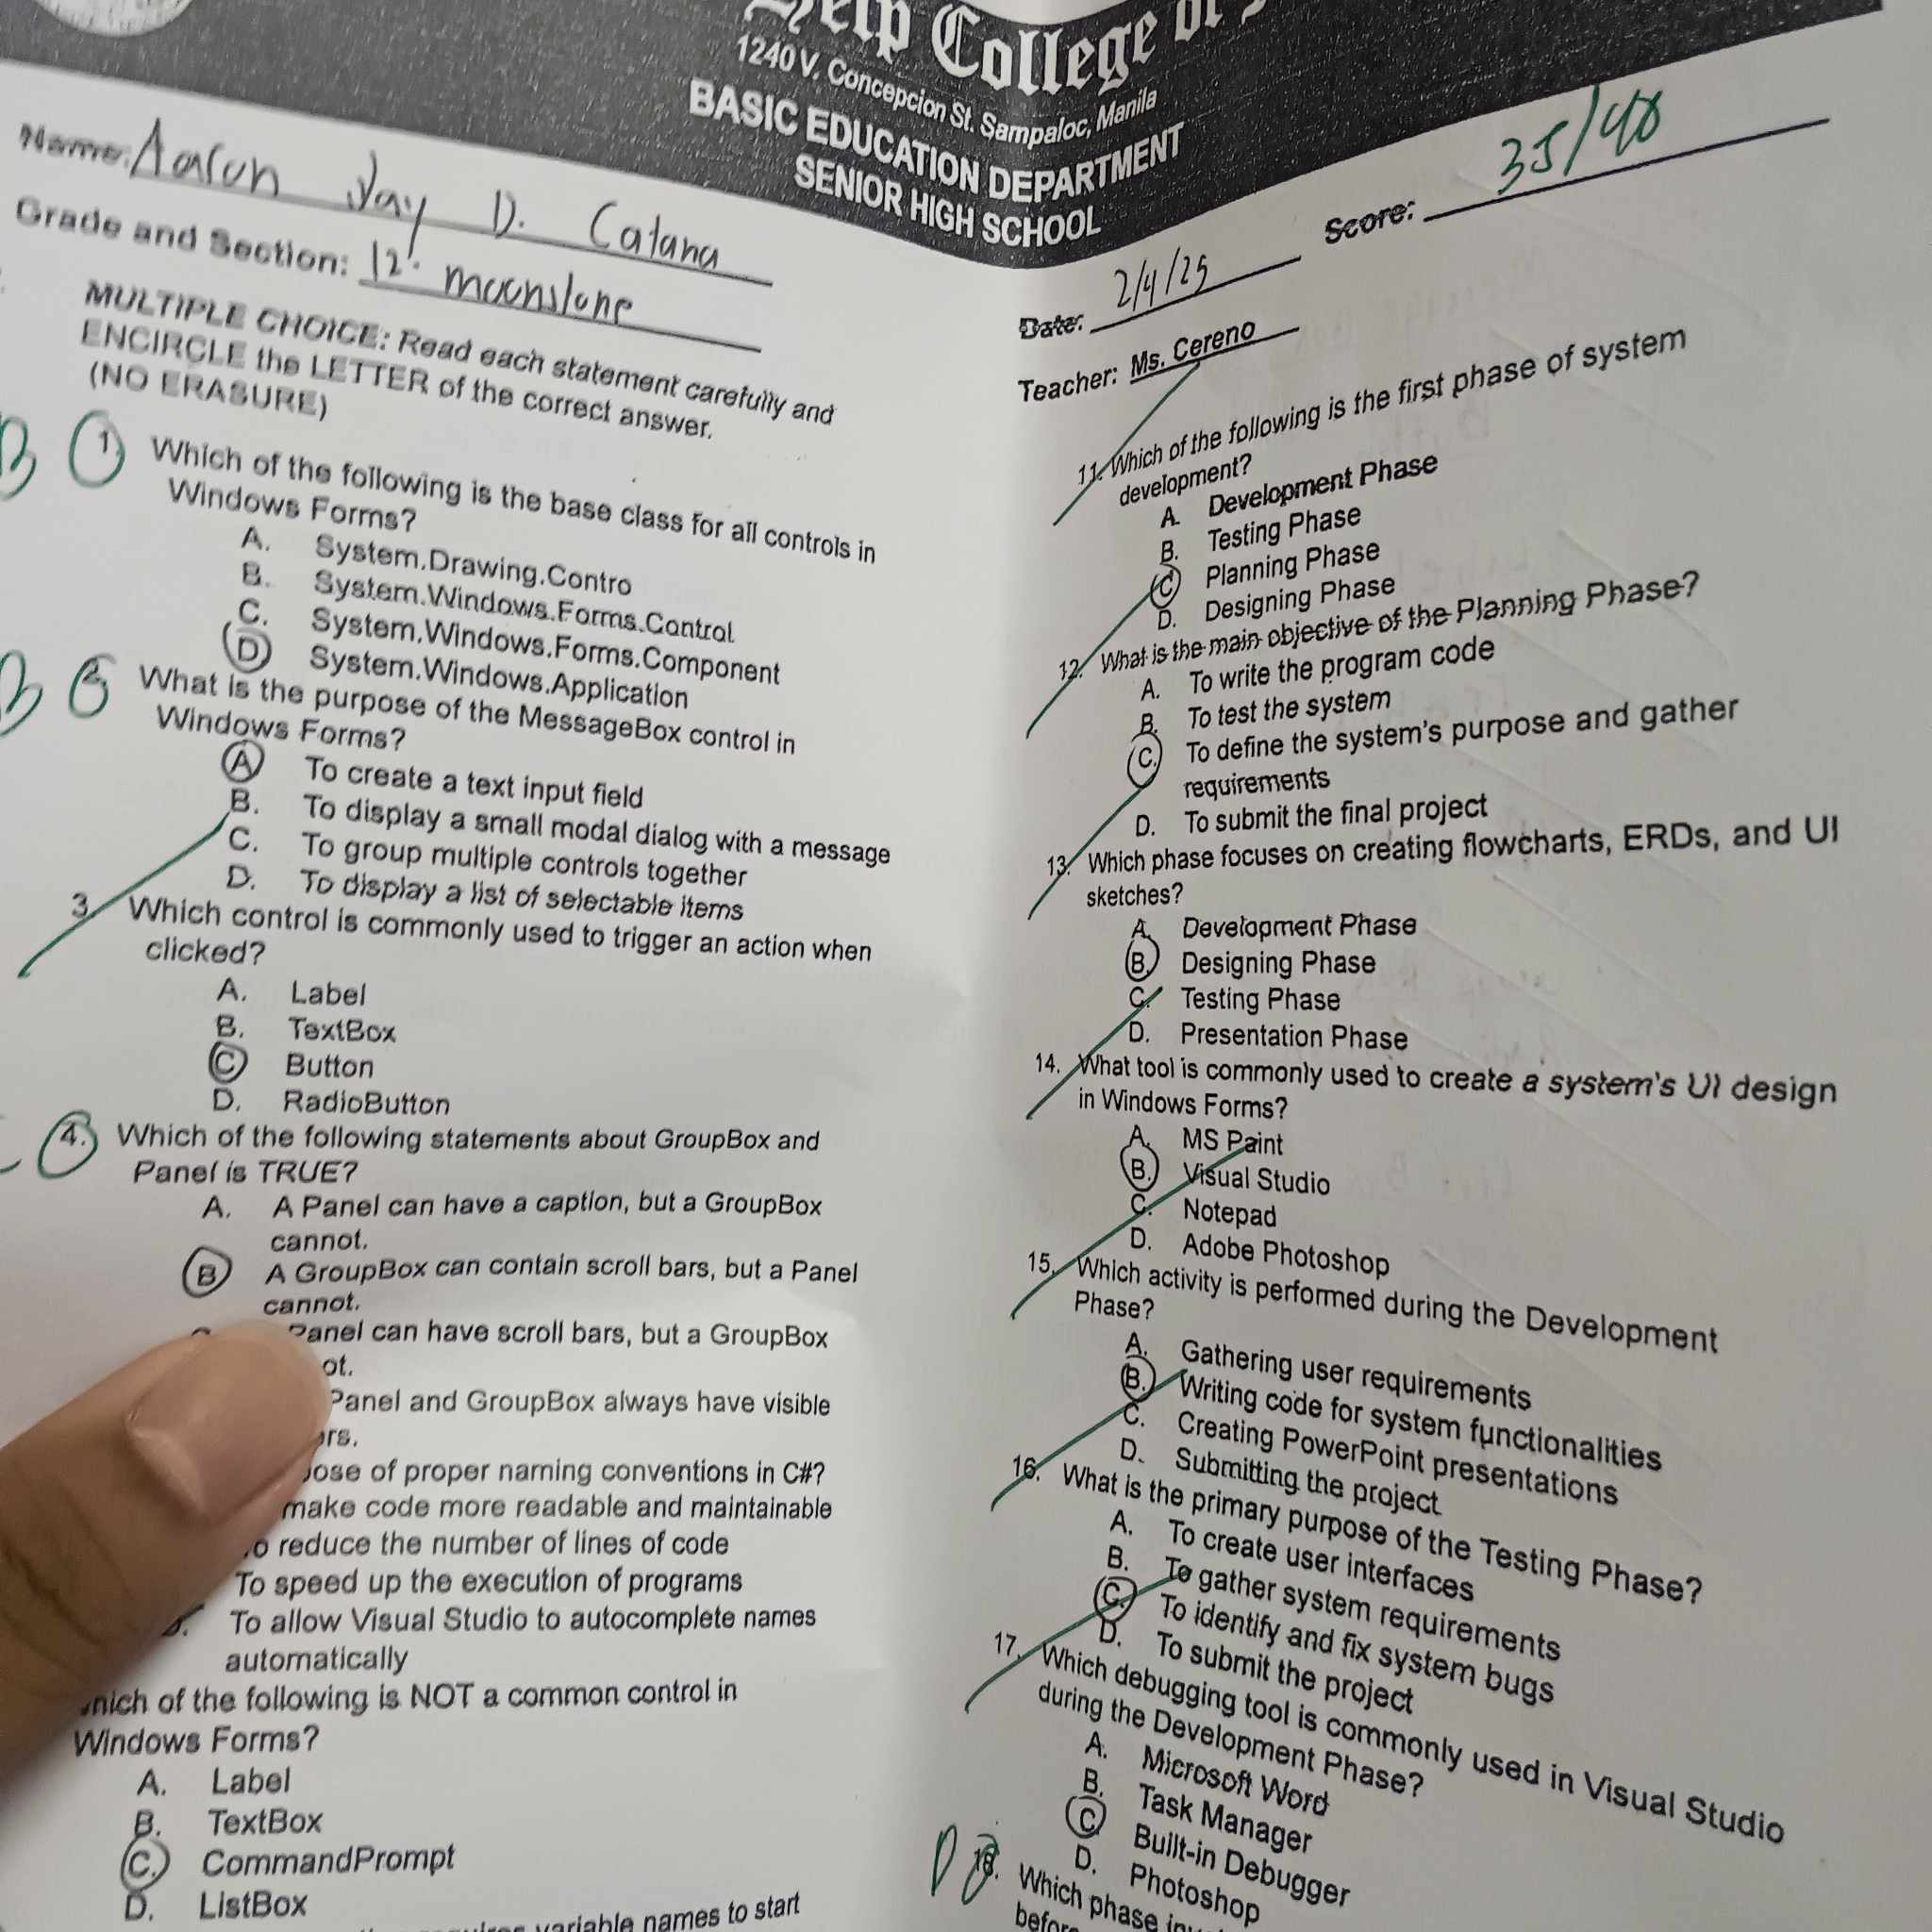 Help College of
1240 V. Concepcion St. Sampaloc, Manila
BASIC EDUCATION DEPARTMENT
SENIOR HIGH SCHOOL
Name: Aaron Jay D. Catana
Grade and Section: 12. moonstone
Score: 35/40
Date: 2/4/25
Teacher: Ms. Cereno
MULTIPLE CHOICE: Read each statement carefully and
ENCIRCLE the LETTER of the correct answer.
(NO ERASURE)
B 1. Which of the following is the base class for all controls in
Windows Forms?
A. System.Drawing.Contro
B. System.Windows.Forms.Control
C. System.Windows.Forms.Component
D. System.Windows.Application
B 2. What is the purpose of the MessageBox control in
Windows Forms?
A. To create a text input field
B. To display a small modal dialog with a message
C. To group multiple controls together
D. To display a list of selectable items
3. Which control is commonly used to trigger an action when
clicked?
A. Label
B. TextBox
C. Button
D. RadioButton
4. Which of the following statements about GroupBox and
Panel is TRUE?
A. A Panel can have a caption, but a GroupBox
cannot.
B. A GroupBox can contain scroll bars, but a Panel
cannot.
Panel can have scroll bars, but a GroupBox
ot.
Panel and GroupBox always have visible
rs.
ose of proper naming conventions in C#?
make code more readable and maintainable
o reduce the number of lines of code
To speed up the execution of programs
To allow Visual Studio to autocomplete names
automatically
hich of the following is NOT a common control in
Windows Forms?
A. Label
B. TextBox
C. CommandPrompt
D. ListBox
variable names to start
11. Which of the following is the first phase of system
development?
A. Development Phase
B. Testing Phase
C. Planning Phase
D. Designing Phase
12. What is the main objective of the Planning Phase?
A. To write the program code
B. To test the system
C. To define the system's purpose and gather
requirements
D. To submit the final project
13. Which phase focuses on creating flowcharts, ERDs, and UI
sketches?
A. Development Phase
B. Designing Phase
C. Testing Phase
D. Presentation Phase
14. What tool is commonly used to create a system's UI design
in Windows Forms?
A. MS Paint
B. Visual Studio
C. Notepad
D. Adobe Photoshop
15. Which activity is performed during the Development
Phase?
A. Gathering user requirements
B. Writing code for system functionalities
C. Creating PowerPoint presentations
D. Submitting the project
16. What is the primary purpose of the Testing Phase?
A. To create user interfaces
B. To gather system requirements
C. To identify and fix system bugs
D. To submit the project
17. Which debugging tool is commonly used in Visual Studio
during the Development Phase?
A. Microsoft Word
B. Task Manager
C. Built-in Debugger
D. Photoshop
D 18. Which phase